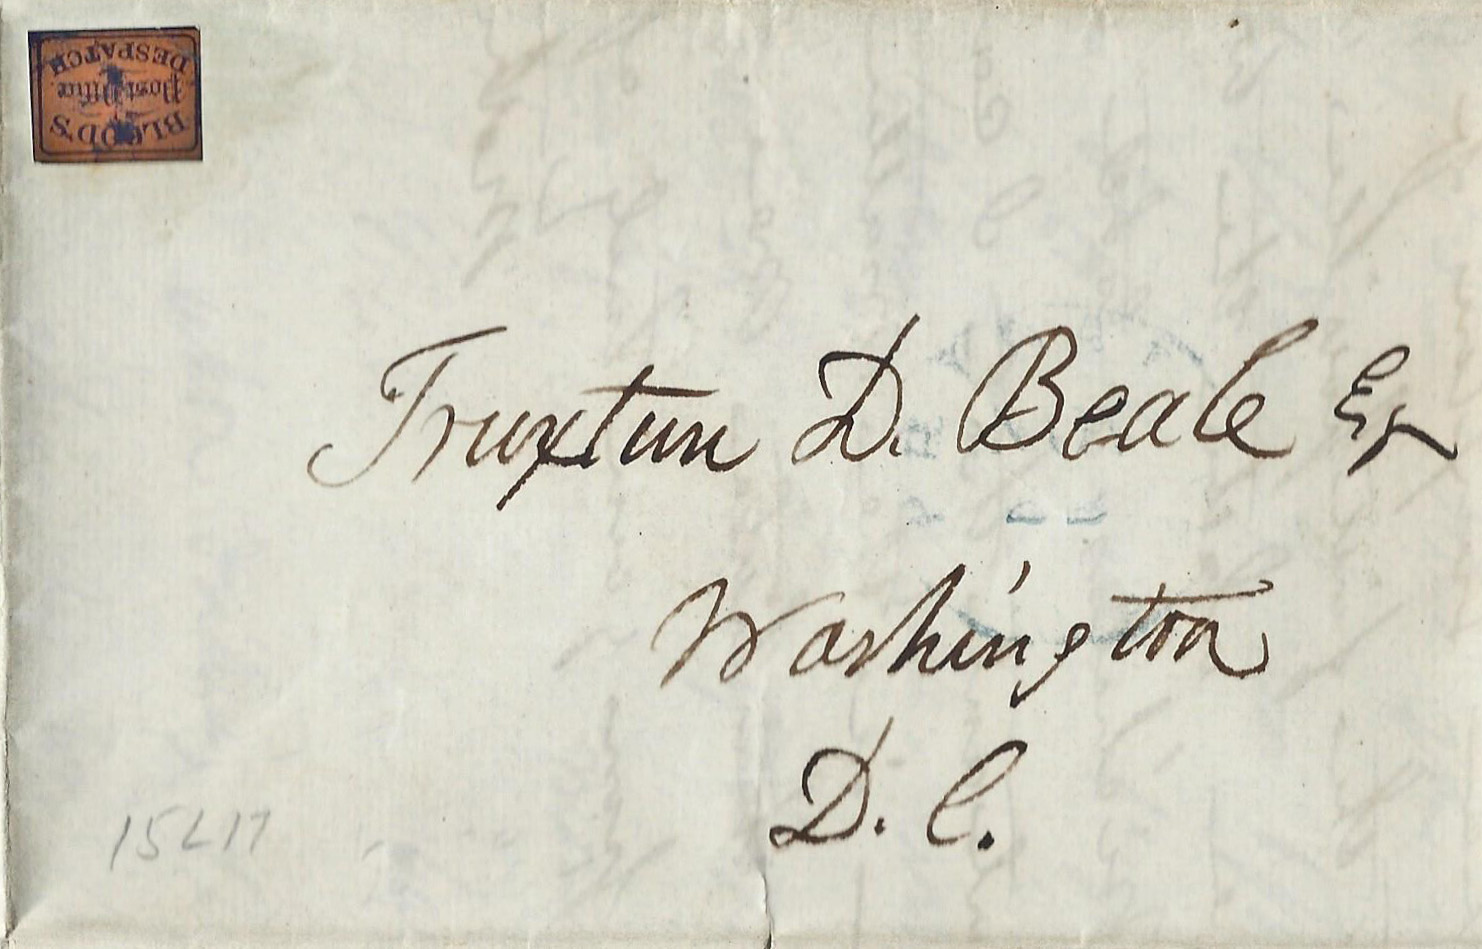 BLOOD'S
Post Office
DESPATCH
Truxtun D. Beale Esq
Washington
D. C.
15L17